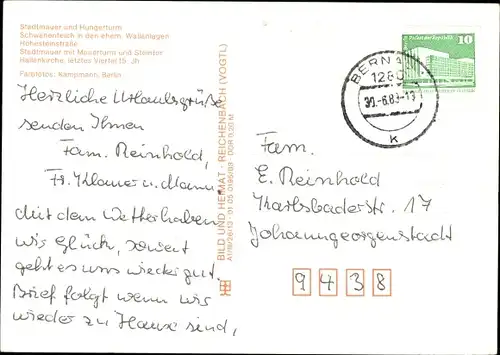 Stadtmauer und Hungerturm
Schwanenteich in den ehem. Wallanlagen
Hohensteinstraße
Stadtmauer mit Mauerturm und Steintor
Hallenkirche, letztes Viertel 15. Jh.
Farbfotos: Kampmann, Berlin
Herzliche Urlaubsgrüße
senden Ihnen
Fam. Reinhold,
Fr. Klamer u. Mann.
Mit dem Wetter haben
wir Glück, soweit
geht es uns wieder gut.
Brief folgt wenn wir
wieder zu Hause sind,
BILD UND HEIMAT · REICHENBACH (VOGTL)
BERNAU
30.-6.83-13
k
10
Fam.
E. Reinhold
Karlsbaderstr. 17
Johanngeorgenstadt
9 4 3 8